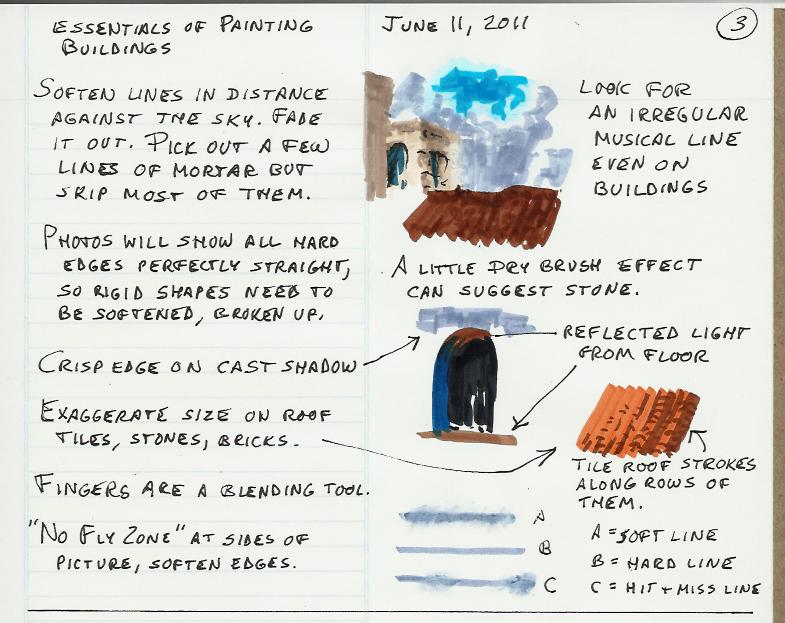 ESSENTIALS OF PAINTING
BUILDINGS
JUNE 11, 2011
3
SOFTEN LINES IN DISTANCE
AGAINST THE SKY. FADE
IT OUT. PICK OUT A FEW
LINES OF MORTAR BUT
SKIP MOST OF THEM.
PHOTOS WILL SHOW ALL HARD
EDGES PERFECTLY STRAIGHT,
SO RIGID SHAPES NEED TO
BE SOFTENED, BROKEN UP.
CRISP EDGE ON CAST SHADOW
EXAGGERATE SIZE ON ROOF
TILES, STONES, BRICKS.
FINGERS ARE A BLENDING TOOL.
"NO FLY ZONE" AT SIDES OF
PICTURE, SOFTEN EDGES.
LOOK FOR
AN IRREGULAR
MUSICAL LINE
EVEN ON
BUILDINGS
A LITTLE DRY BRUSH EFFECT
CAN SUGGEST STONE.
REFLECTED LIGHT
FROM FLOOR
TILE ROOF STROKES
ALONG ROWS OF
THEM.
A
B
C
A = SOFT LINE
B = HARD LINE
C = HIT + MISS LINE